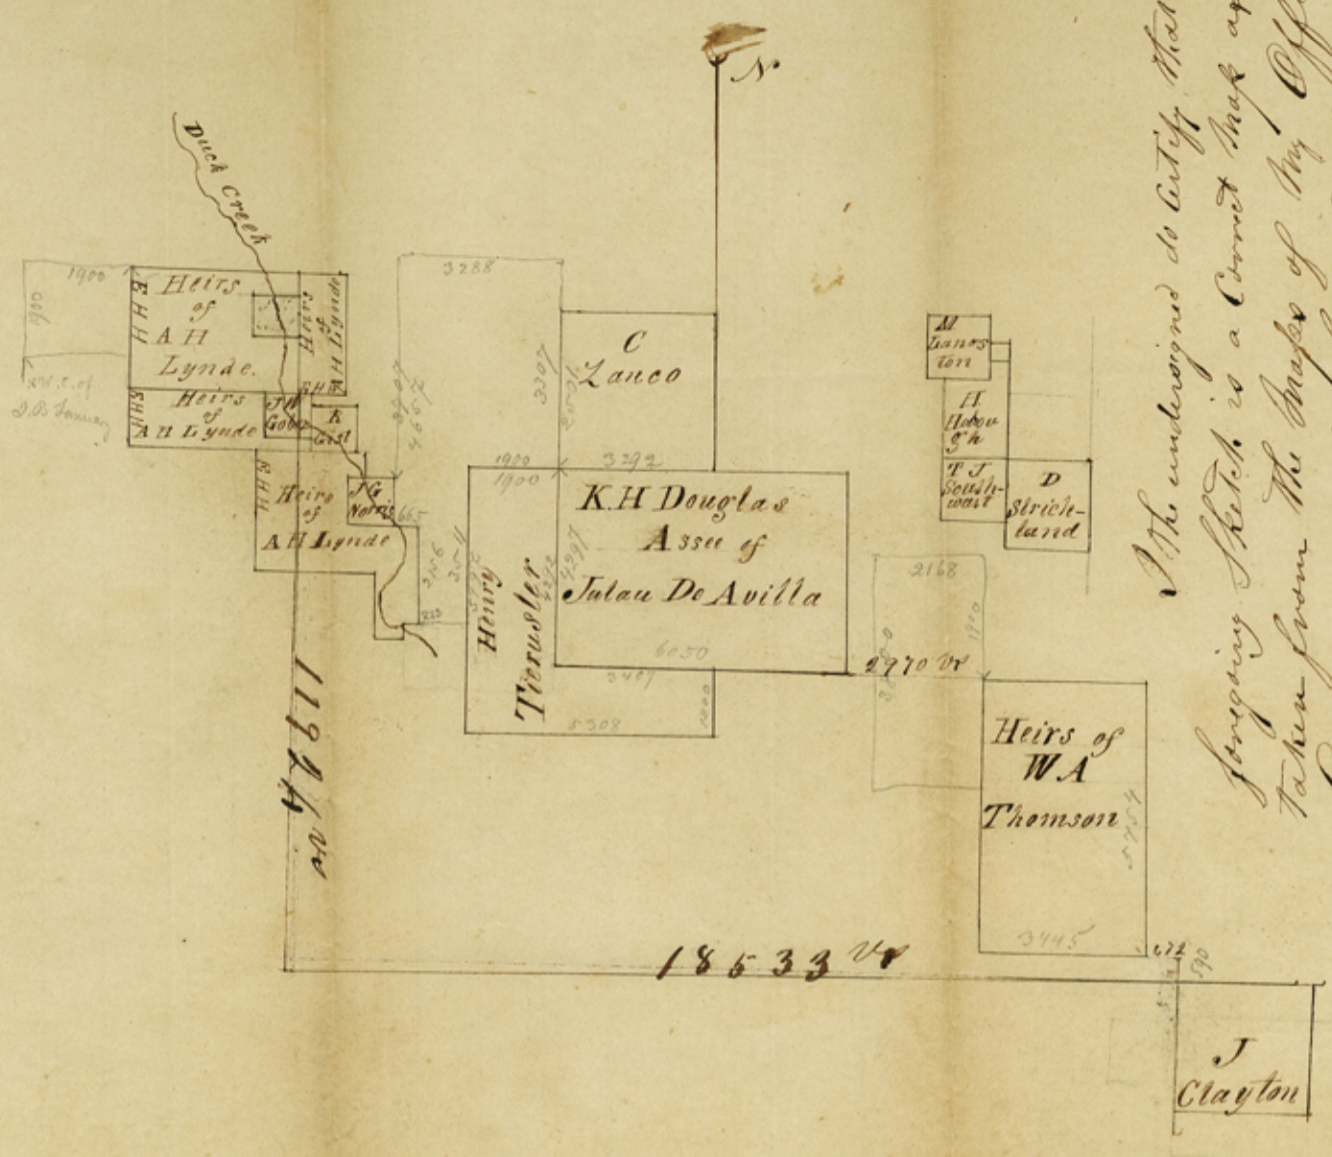 N
Duck Creek
1900
1900
N.W. S. of
J.B. January
Heirs
of
A H
Lynde.
E H H
Heirs
of
A H Lynde
E H H
Heirs
of
A H Lynde
E H H
Heirs
of
A H Lynde
E H H
K
Gist
J G
Norris
3288
3307
C
Lanco
1900
1900
3292
K.H Douglas
Assee of
Julau De Avilla
4297
6050
3407
Henry
Tierusler
5308
1000
665
2156
M
Langs
ton
H
Hobou
gh
T J
South-
wait
D
Strich-
land
2168
1900
2970 Vr
Heirs of
W A
Thomson
5754
3445
672
590
11924 vr
18533 Vr
J
Clayton
I the undersigned do Certify that
foregoing Sketch is a Correct Map
taken from the Maps of My Offi